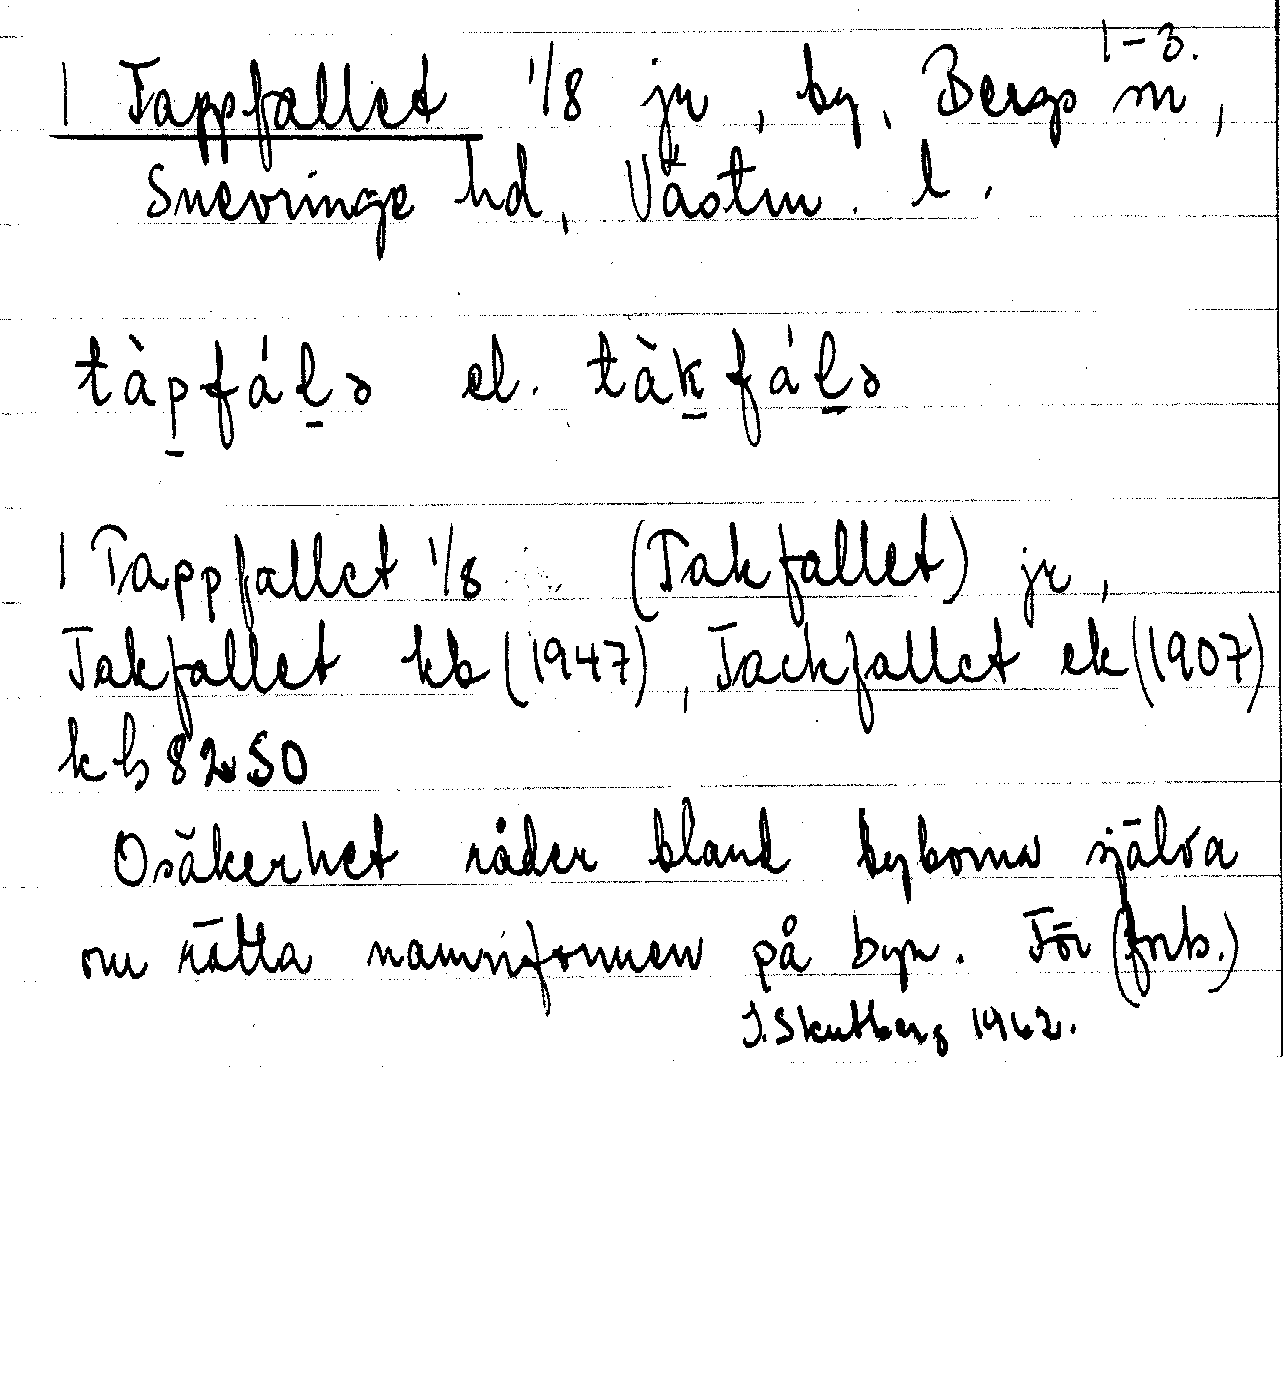 1-3.
1 Tappfallet 1/8 jr, by, Bergs sn,
Snevringe hd, Västm. l.
tàpfál̠ə el. tàk̠fál̠ə
1 Tappfallet 1/8 (Takfallet) jr,
Takfallet kb (1947), Tackfallet ek (1907)
kb 82 SO
Osäkerhet råder bland byborna själva
om rätta namnformen på byn. För (forb.)
J. Skutberg 1962.